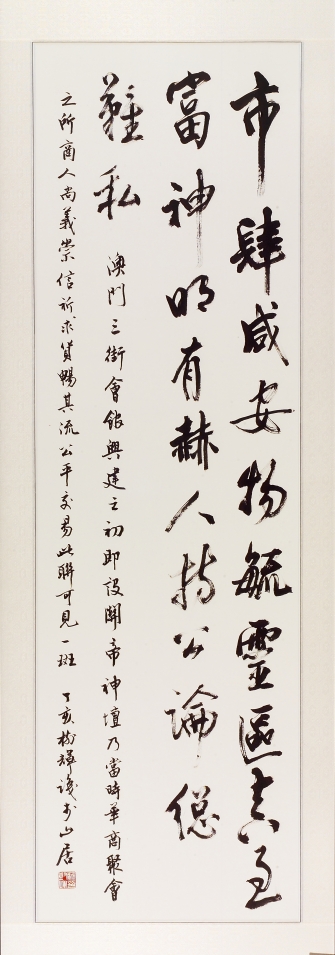 市肆咸安物毓靈區
富神明有赫人持公論總
難私
澳門三街會館興建之初即設關帝神壇乃當時華商聚會
之所商人尚義崇信祈求貨暢其流公平交易此聯可見一斑 丁亥樹輝識於山居